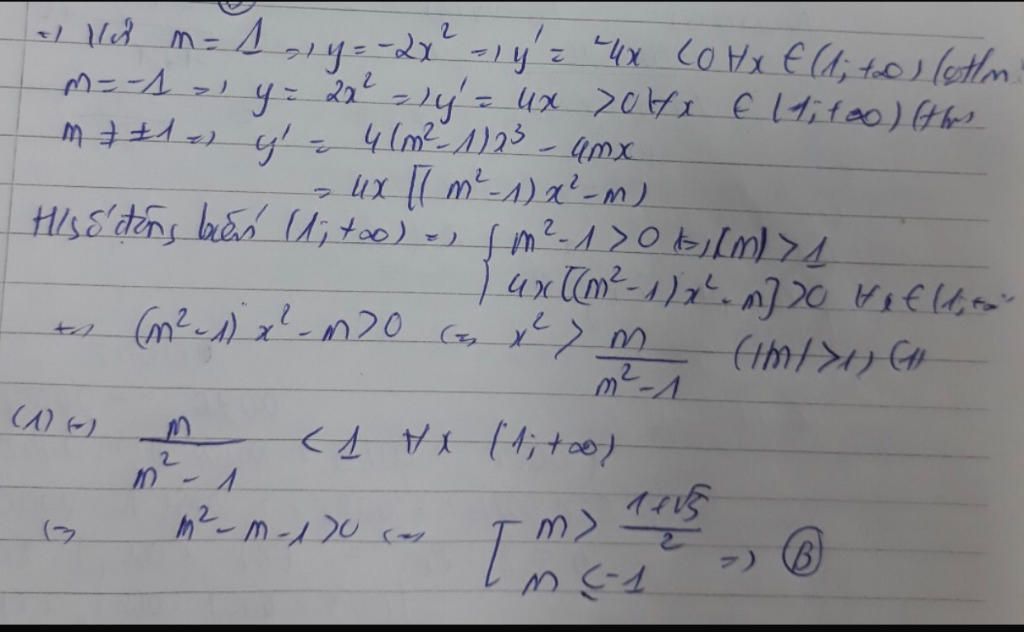 => Với m = 1 => y = -2x² => y' = -4x < 0 ∀x ∈ (1; +∞) (
m = -1 => y = 2x² => y' = 4x > 0 ∀x ∈ (1; +∞) (
m ≠ ±1 => y' = 4(m²-1)x³ - 4mx
= 4x [(m²-1)x²-m)
H/số đồng biến (1; +∞) => { m²-1 > 0 <=> |m| > 1
4x[(m²-1)x²-m] > 0 ∀x ∈ (1; +∞
<=> (m²-1)x²-m > 0 <=> x² > m/(m²-1) (|m| > 1) (1)
(1) <=> m/(m²-1) < 1 ∀x (1; +∞)
<=> m²-m-1 > 0 <=> [ m > (1+√5)/2
m ≤ -1 => B